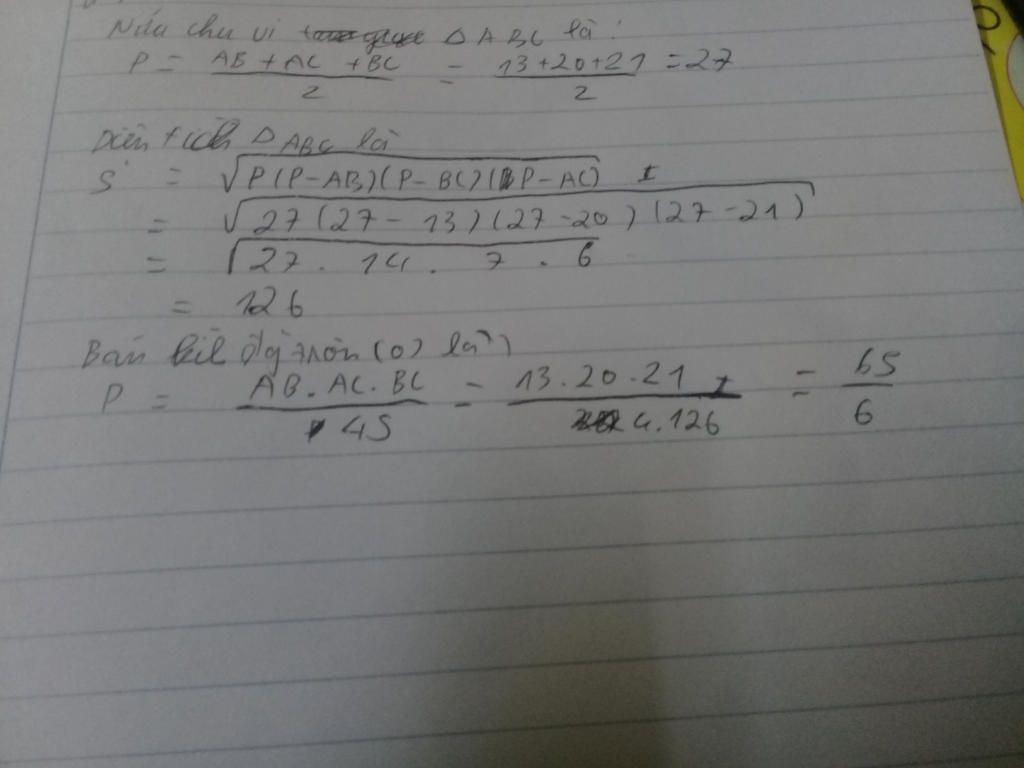 Nửa chu vi △ABC là:
P = \frac{AB + AC + BC}{2} = \frac{13+20+21}{2} = 27
Diện tích △ABC là
S = \sqrt{P(P-AB)(P-BC)(P-AC)}
= \sqrt{27(27-13)(27-20)(27-21)}
= \sqrt{27.14.7.6}
= 126
Bán kít đg tròn (O) là
P = \frac{AB.AC.BC}{4S} = \frac{13.20.21}{4.126} = \frac{65}{6}